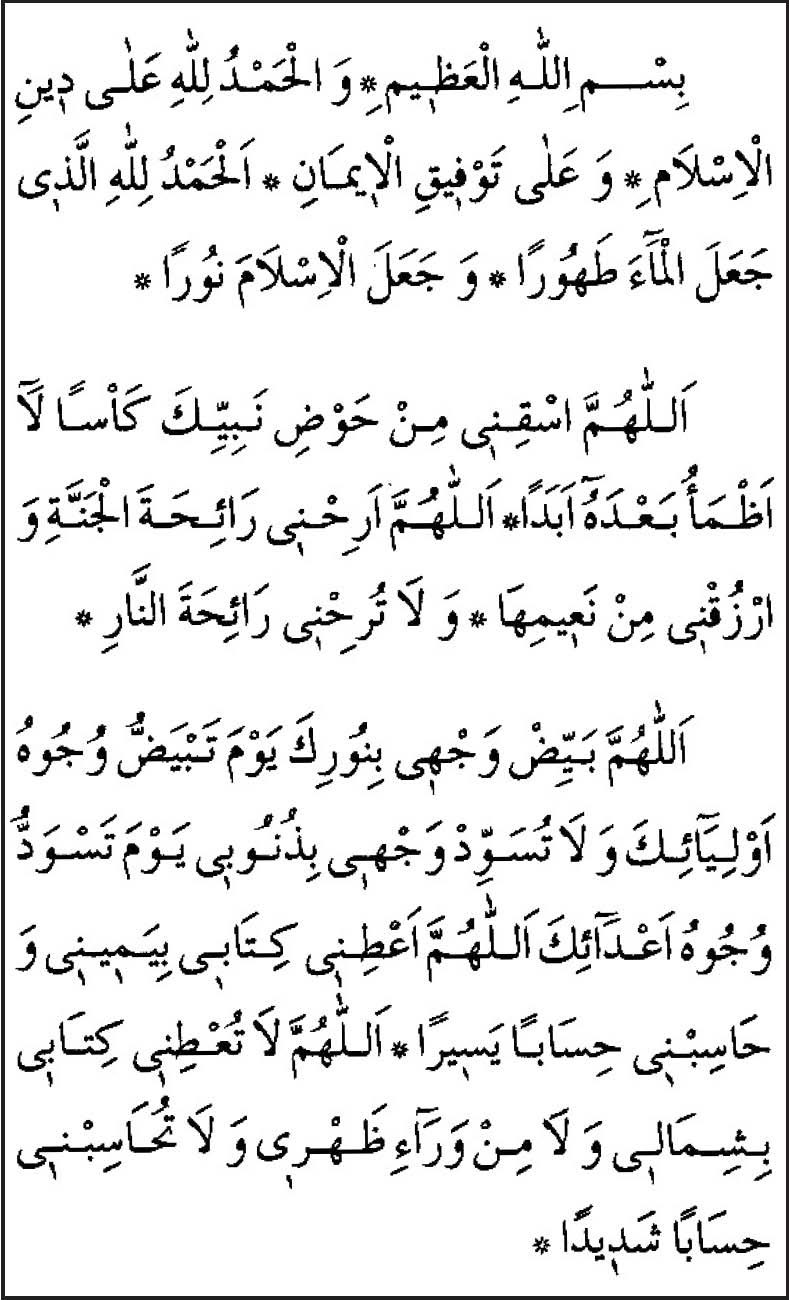 بِسْمِ اللّٰهِ الْعَظ۪يمِ * وَ الْحَمْدُ لِلّٰهِ عَلٰى د۪ينِ
الْاِسْلَامِ * وَ عَلٰى تَوْف۪يقِ الْا۪يمَانِ * اَلْحَمْدُ لِلّٰهِ الَّذ۪ى
جَعَلَ الْمَٓاءَ طَهُورًا * وَ جَعَلَ الْاِسْلَامَ نُورًا *
اَللّٰهُمَّ اسْقِن۪ى مِنْ حَوْضِ نَبِيِّكَ كَاْسًا لَٓا
اَظْمَأُ بَعْدَهُٓ اَبَدًا * اَللّٰهُمَّ اَرِحْن۪ى رَائِحَةَ الْجَنَّةِ وَ
ارْزُقْن۪ى مِنْ نَع۪يمِهَا * وَ لَا تُرِحْن۪ى رَائِحَةَ النَّارِ *
اَللّٰهُمَّ بَيِّضْ وَجْه۪ى بِنُورِكَ يَوْمَ تَبْيَضُّ وُجُوهُ
اَوْلِيَٓائِكَ وَ لَا تُسَوِّدْ وَجْه۪ى بِذُنُوب۪ى يَوْمَ تَسْوَدُّ
وُجُوهُ اَعْدَٓائِكَ اَللّٰهُمَّ اَعْطِن۪ى كِتَاب۪ى بِيَم۪ين۪ى وَ
حَاسِبْن۪ى حِسَابًا يَس۪يرًا * اَللّٰهُمَّ لَا تُعْطِن۪ى كِتَاب۪ى
بِشِمَال۪ى وَ لَا مِنْ وَرَٓاءِ ظَهْر۪ى وَ لَا تُحَاسِبْن۪ى
حِسَابًا شَد۪يدًا *